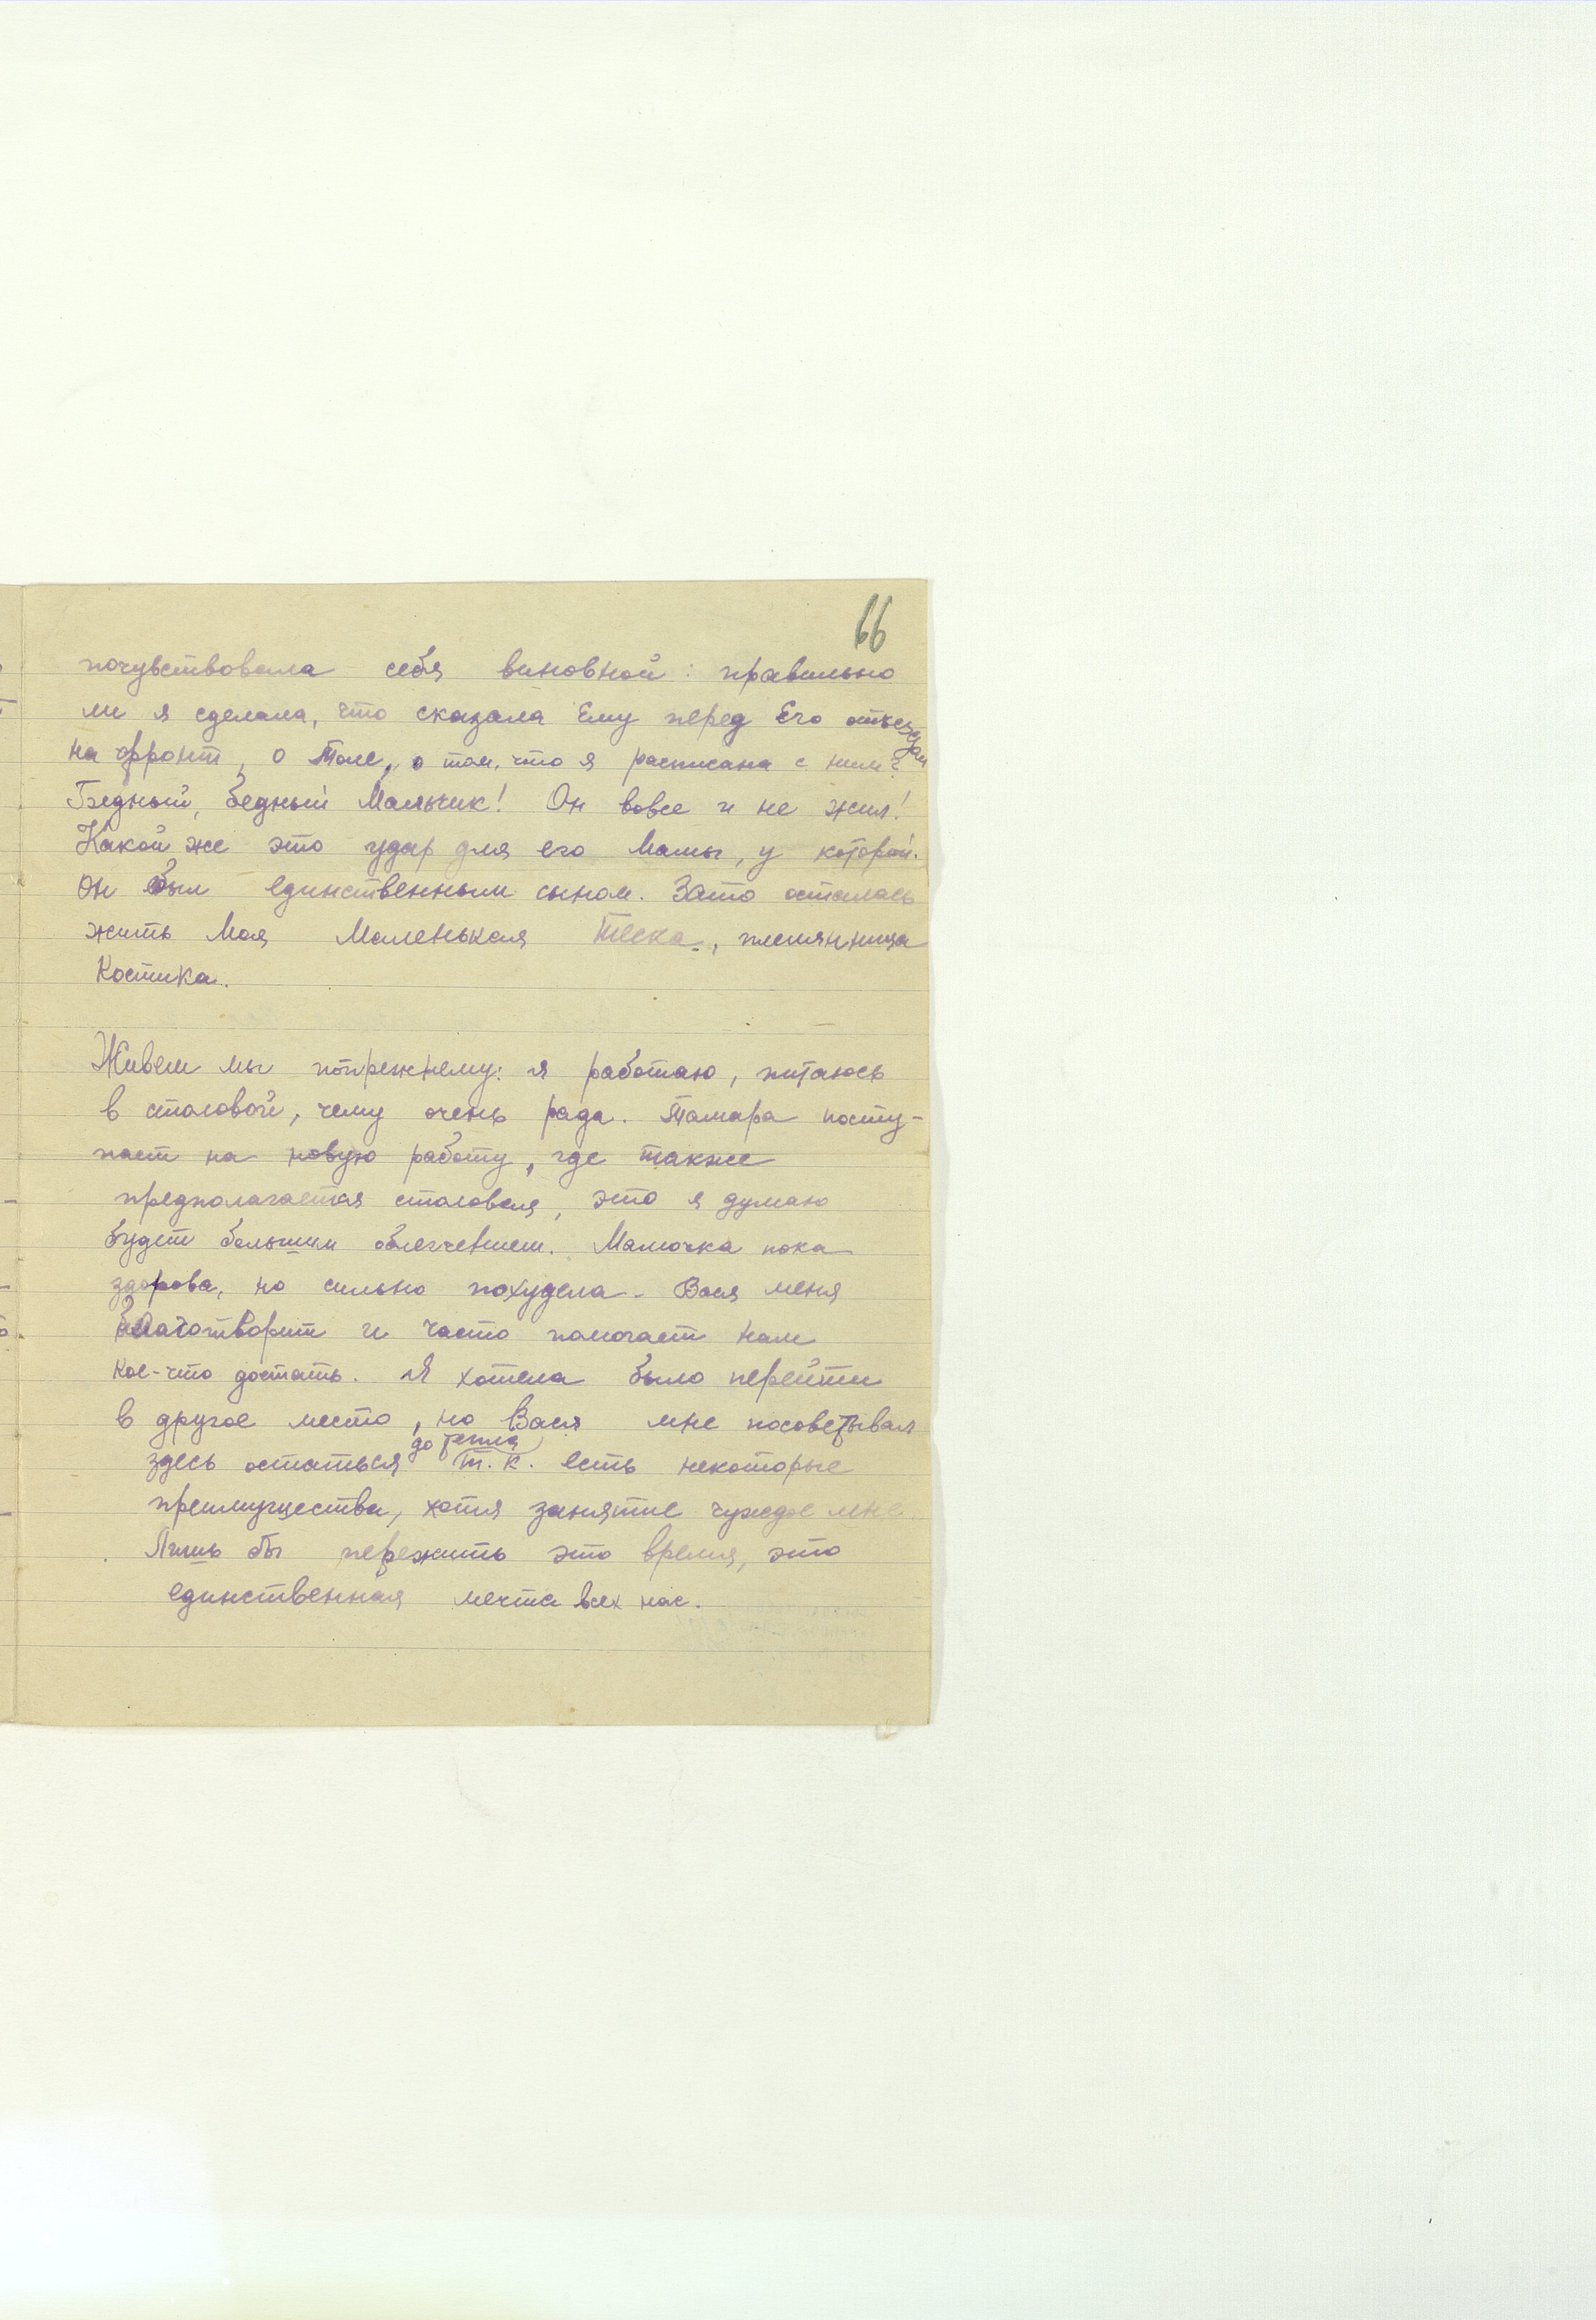 66
почувствовала себя виновной: правильно
ли я сделала, что сказала Ему перед Его отъездом
на фронт, о Толе, о том, что я расписана с ним?
Бедный, бедный Мальчик! Он вовсе и не жил!
Какой же это удар для его Мамы, у которой
он был единственным сыном. Зато осталась
жить Моя Маленькая Тёска, племянница
Костика.
Живем мы попрежнему: я работаю, питаюсь
в столовой, чему очень рада. Тамара посту-
пает на новую работу, где также
предполагается столовая, это я думаю
будет большим облегчением. Мамочка пока
здорова, но сильно похудела. Вася меня
благотворит и часто помогает нам
кое-что достать. Я хотела было перейти
в другое место, но Вася мне посоветывал
здесь остаться до тепла т.к. есть некоторые
преимущества, хотя занятие чуждое мне.
Лишь бы пережить это время, это
единственная мечта всех нас.